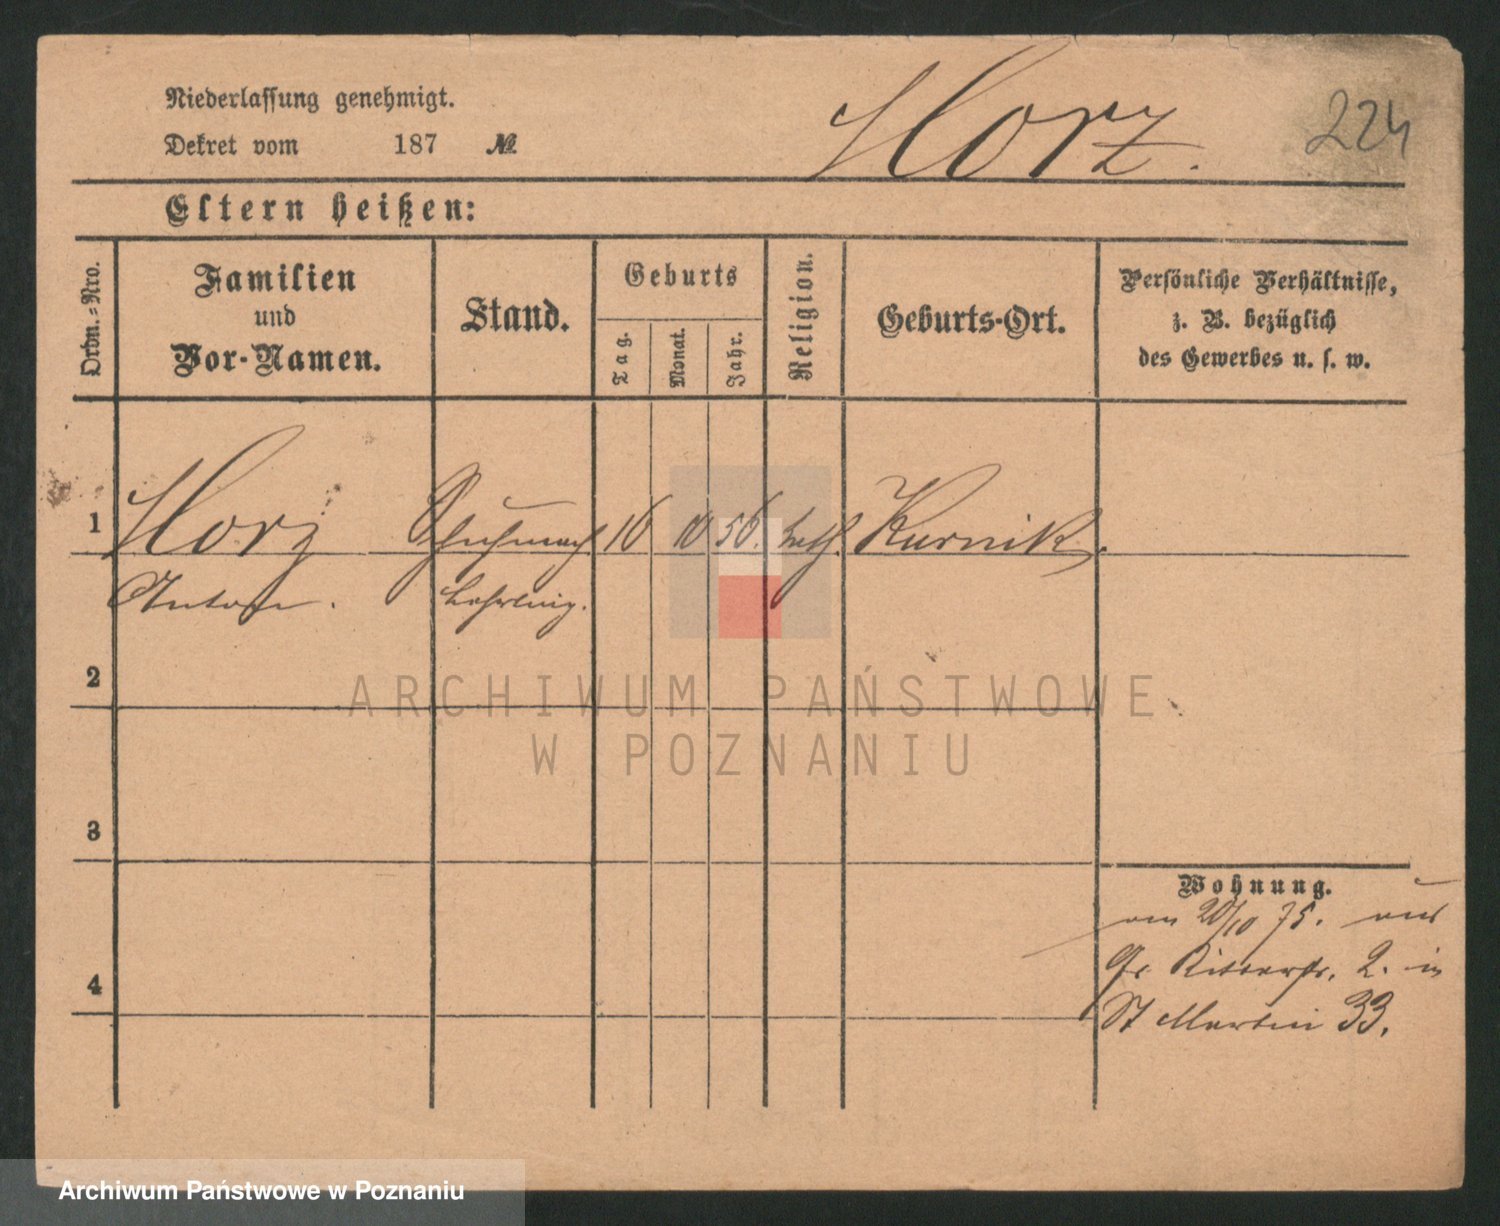 Niederlassung genehmigt.
Dekret vom 187 №
Horz.
224
Eltern heißen:
Ordn.-Nro.
Familien
und
Vor-Namen.
Stand.
Geburts
Tag.
Monat.
Jahr.
Religion.
Geburts-Ort.
Persönliche Verhältnisse,
z. B. bezüglich
des Gewerbes u. s. w.
1 Horz Schuhmach 16 10 56. kath. Kurnik.
Anton. Lehrling.
2
ARCHIWUM PAŃSTWOWE
W POZNANIU
3
Wohnung.
am 20/10 75. aus
Gr. Ritterstr. 2. in
4
St Martin 33.
Archiwum Państwowe w Poznaniu